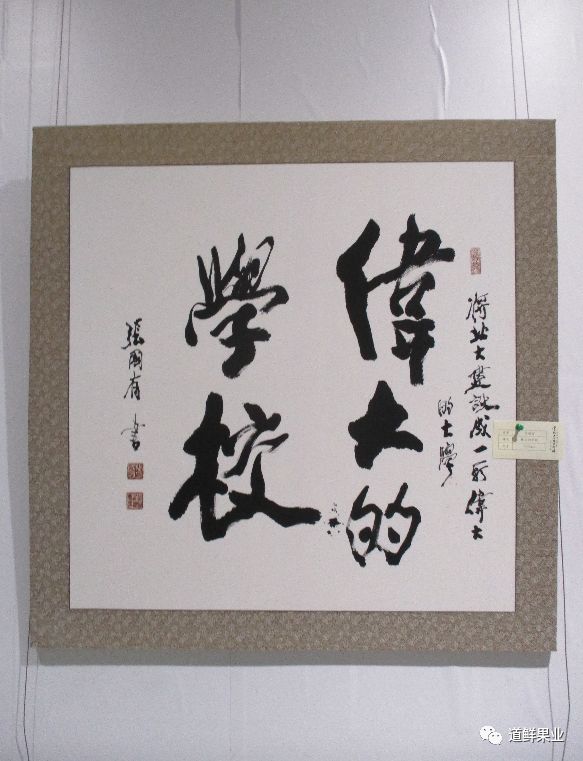 將北大建設成一所偉大
的大學
偉大的
學校
張國有 書
道鲜果业